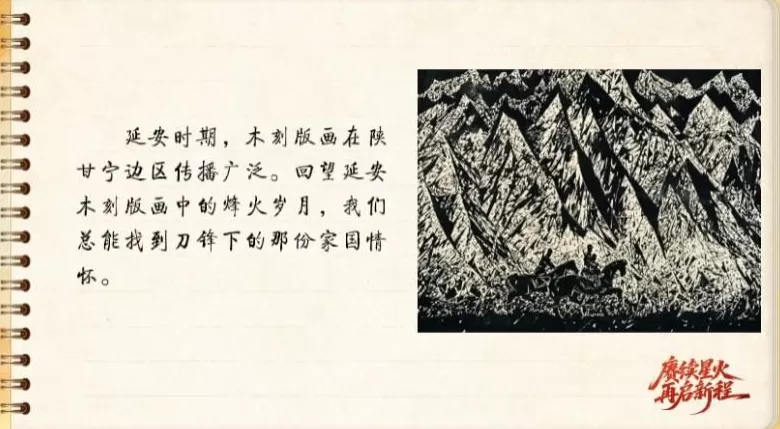 延安时期，木刻版画在陕
甘宁边区传播广泛。回望延安
木刻版画中的烽火岁月，我们
总能找到刀锋下的那份家国情
怀。
赓续星火
再启新程